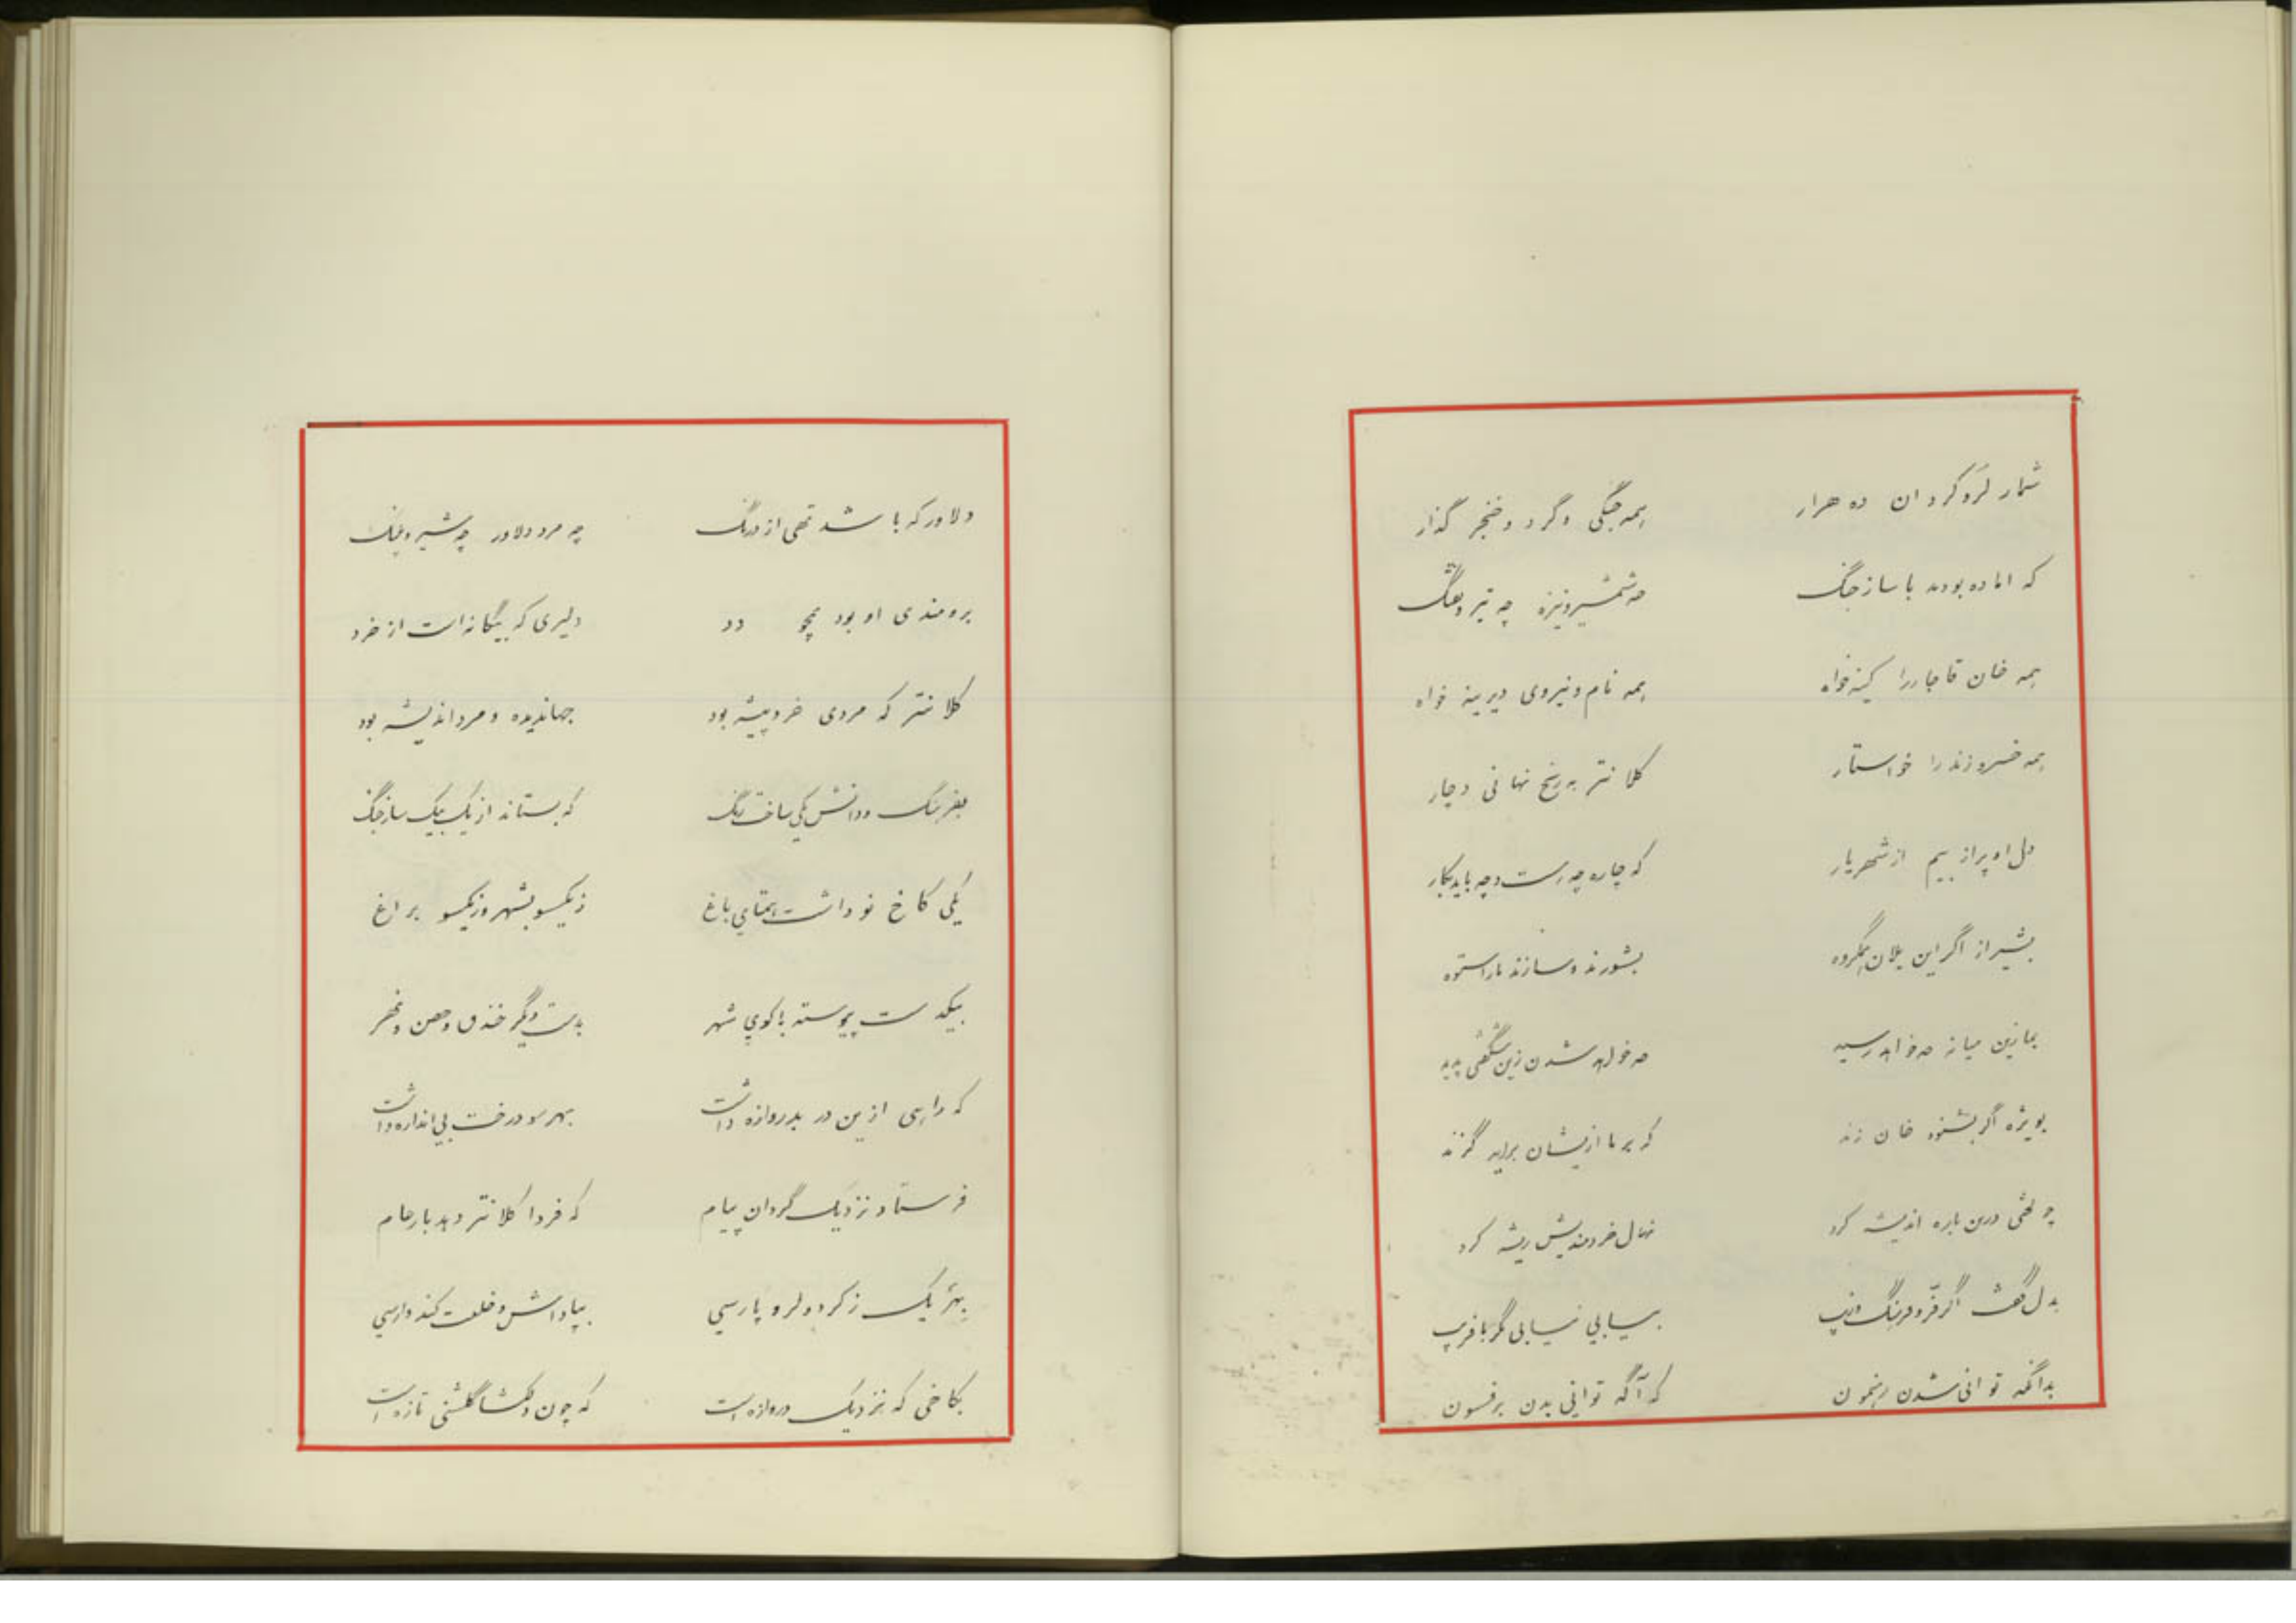 شمار لر و کردان ده هزار همه جنگی و گرد و خنجر گذار
که اماده بودند با ساز جنگ چه شمشیر و نیزه چه تیر و تفنگ
همه خان قاجار را کینه خواه همه نام و نیروی دیرینه خواه
همه خسرو زند را خواستار کلانتر به رنج نهانی دچار
دل او پر از بیم از شهریار که چاره چه رست و چه باید بکار
بشیراز اگر این یلان همگروه بشورند و سازند ما را ستوه
بما زین میانه چه خواهد رسید چه خواهد شدن زین شگفتی پدید
بویژه اگر بشنود خان زند که بر ما ازیشان براید گزند
چو لختی درین باره اندیشه کرد نهال خردمندیش ریشه کرد
بدل گفت اگر فر و فرهنگ و زیب بسیابی نسیابی مگر با فریب
بدانگه توانی شدن رهنمون که آگه توانی بدن بر فسون
دلاور که باشد تهی از درنگ چه مرد دلاور چه شیر و پلنگ
برومندی او بود همچو دد دلیری که بیگانه است از خرد
کلانتر که مردی خرد پیشه بود جهاندیده و مرد اندیشه بود
بفرهنگ و دانش یکی ساخت رنگ که بستاند از یک بیک ساز جنگ
یکی کاخ نو داشت همتای باغ ز یکسو بشهر و ز یکسو براغ
بیکدست پیوسته با کوی شهر بدست دیگر خندق و حصن و نهر
که راهی ازین در بدروازه داشت بهر سو درخت بی اندازه داشت
فرستاد نزدیک گردان پیام که فردا کلانتر دهد بار عام
بهر یک ز کرد و لر و پارسی بپاداش و خلعت کند وارسی
بکاخی که نزدیک دروازه است که چون دلکشا گلشنی تازه است